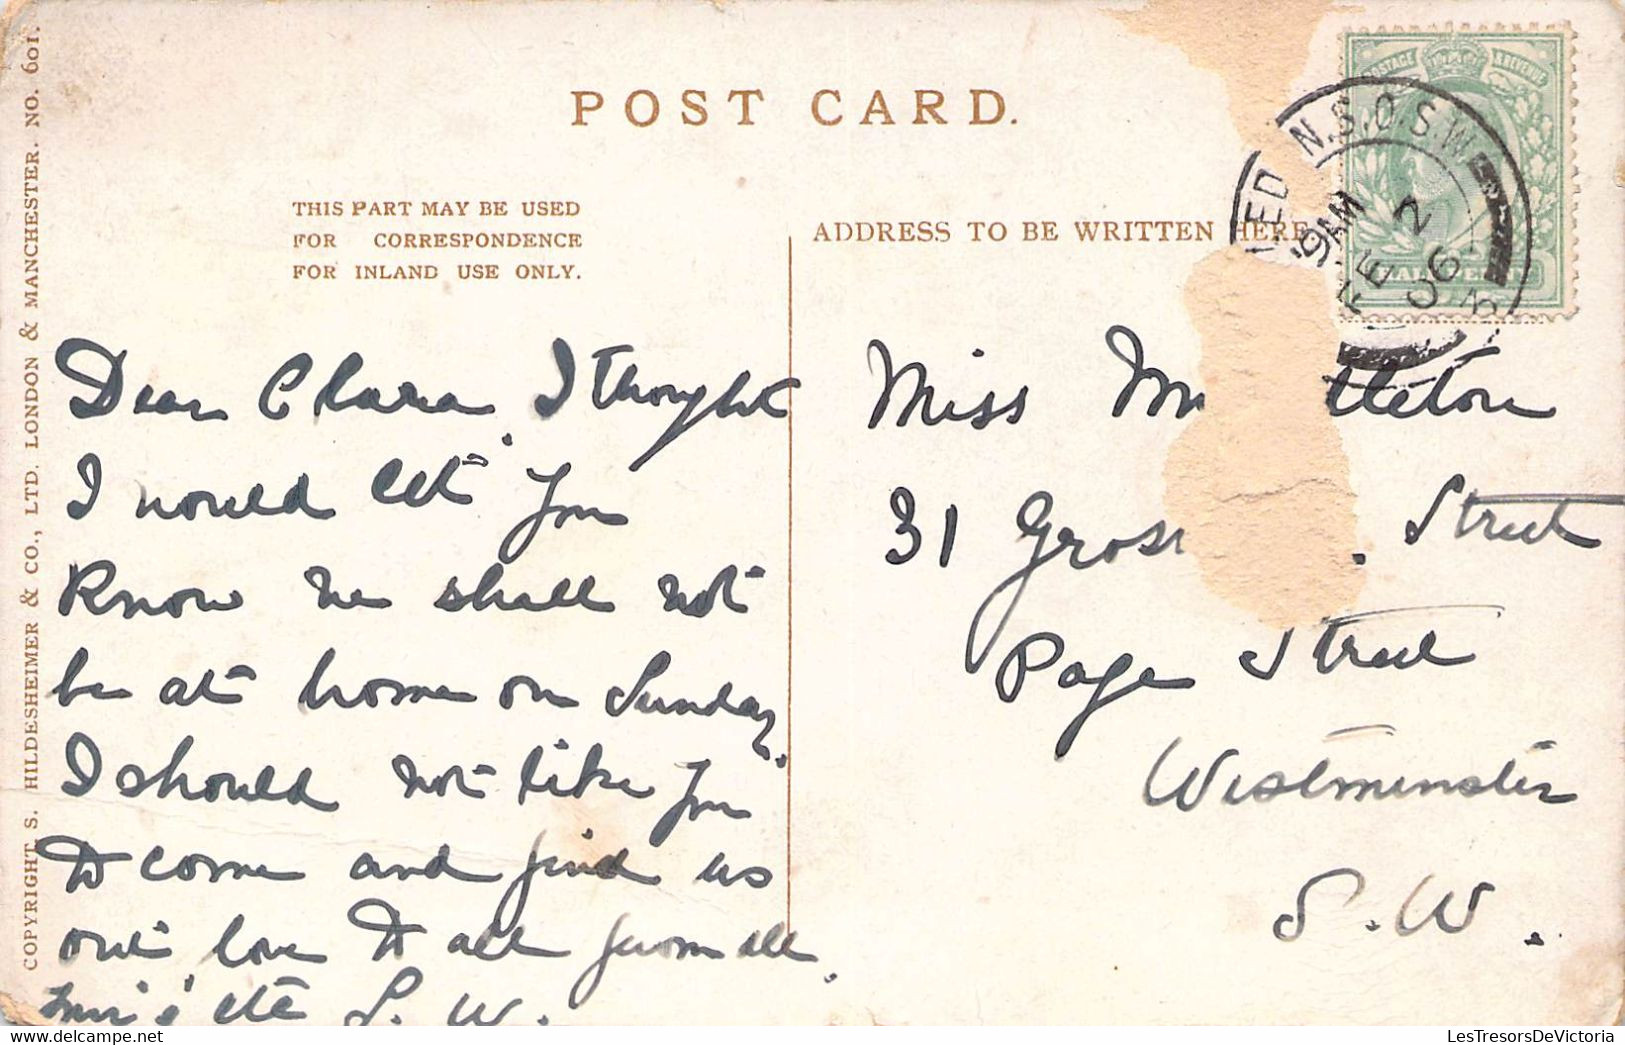 POST CARD.
THIS PART MAY BE USED
FOR CORRESPONDENCE
FOR INLAND USE ONLY.
ADDRESS TO BE WRITTEN HERE
COPYRIGHT S. HILDESHEIMER & CO., LTD. LONDON & MANCHESTER. NO. 601.
POSTAGE & REVENUE
N.S.O.S.W.
9 AM
FE 2
06
Dear Clara, I thought
I would let you
know we shall not
be at home on Sunday,
I should not like you
to come and find us
out, love to all from all
etc S. W.
Miss
31 Street
Page Street
Westminster
S. W.
LesTresorsDeVictoria